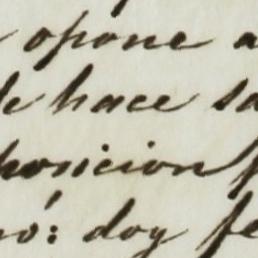 opone a
le hace sa
posicion f
nó: doy fe